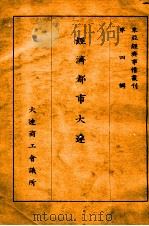 東亞經濟事情叢刊
第四輯
經濟都市大連
大連商工會議所